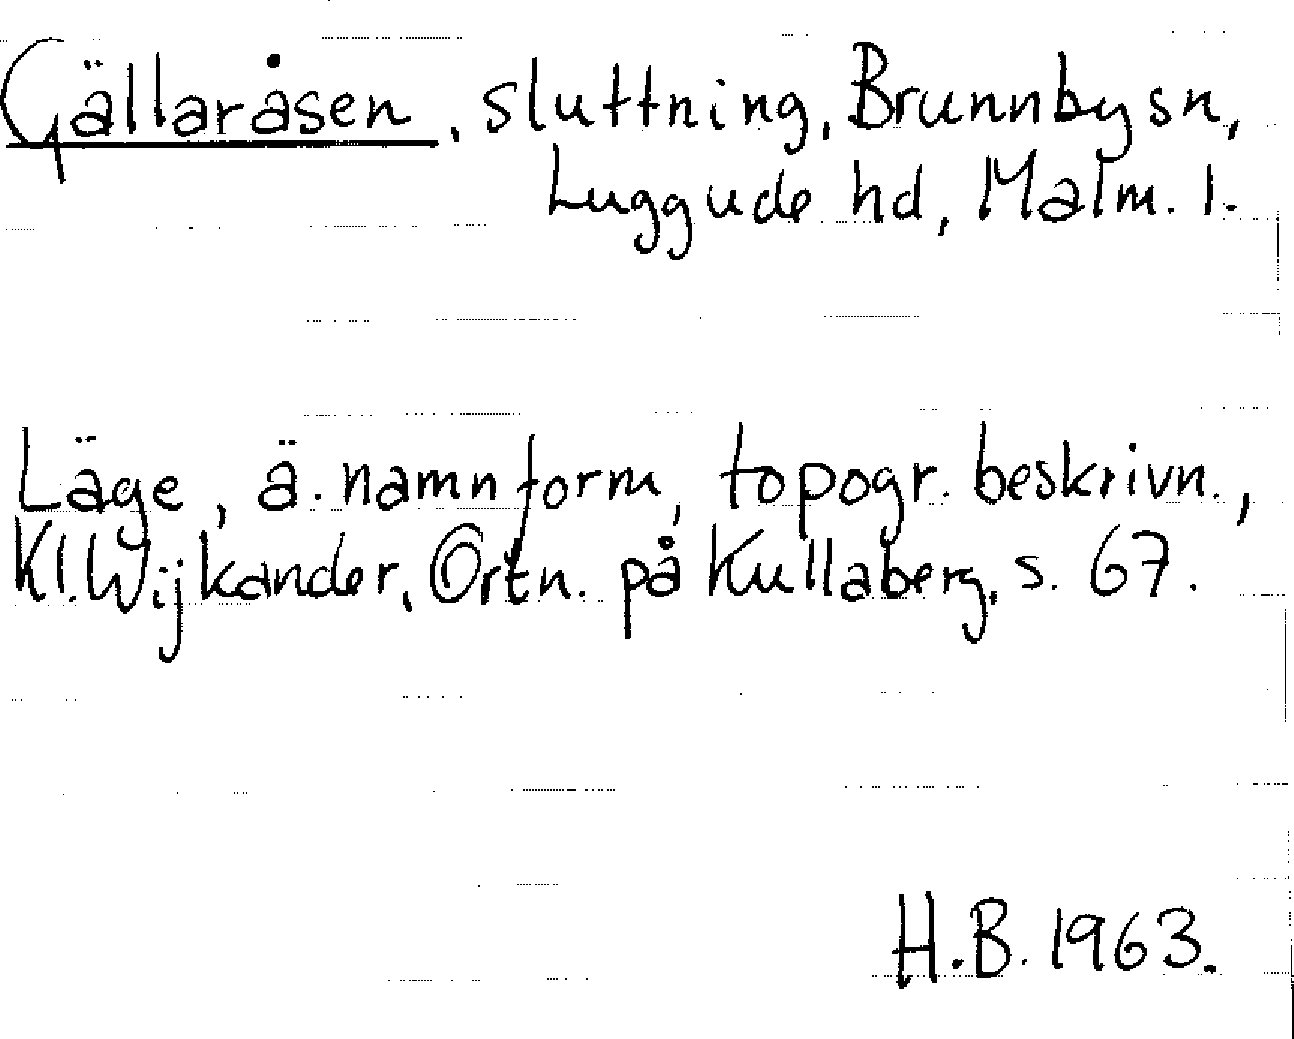 Gällaråsen, sluttning, Brunnby sn,
Luggude hd, Malm. l.
Läge, ä. namnform, topogr. beskrivn.,
Kl. Wijkander, Ortn. på Kullaberg, s. 67.
H.B. 1963.